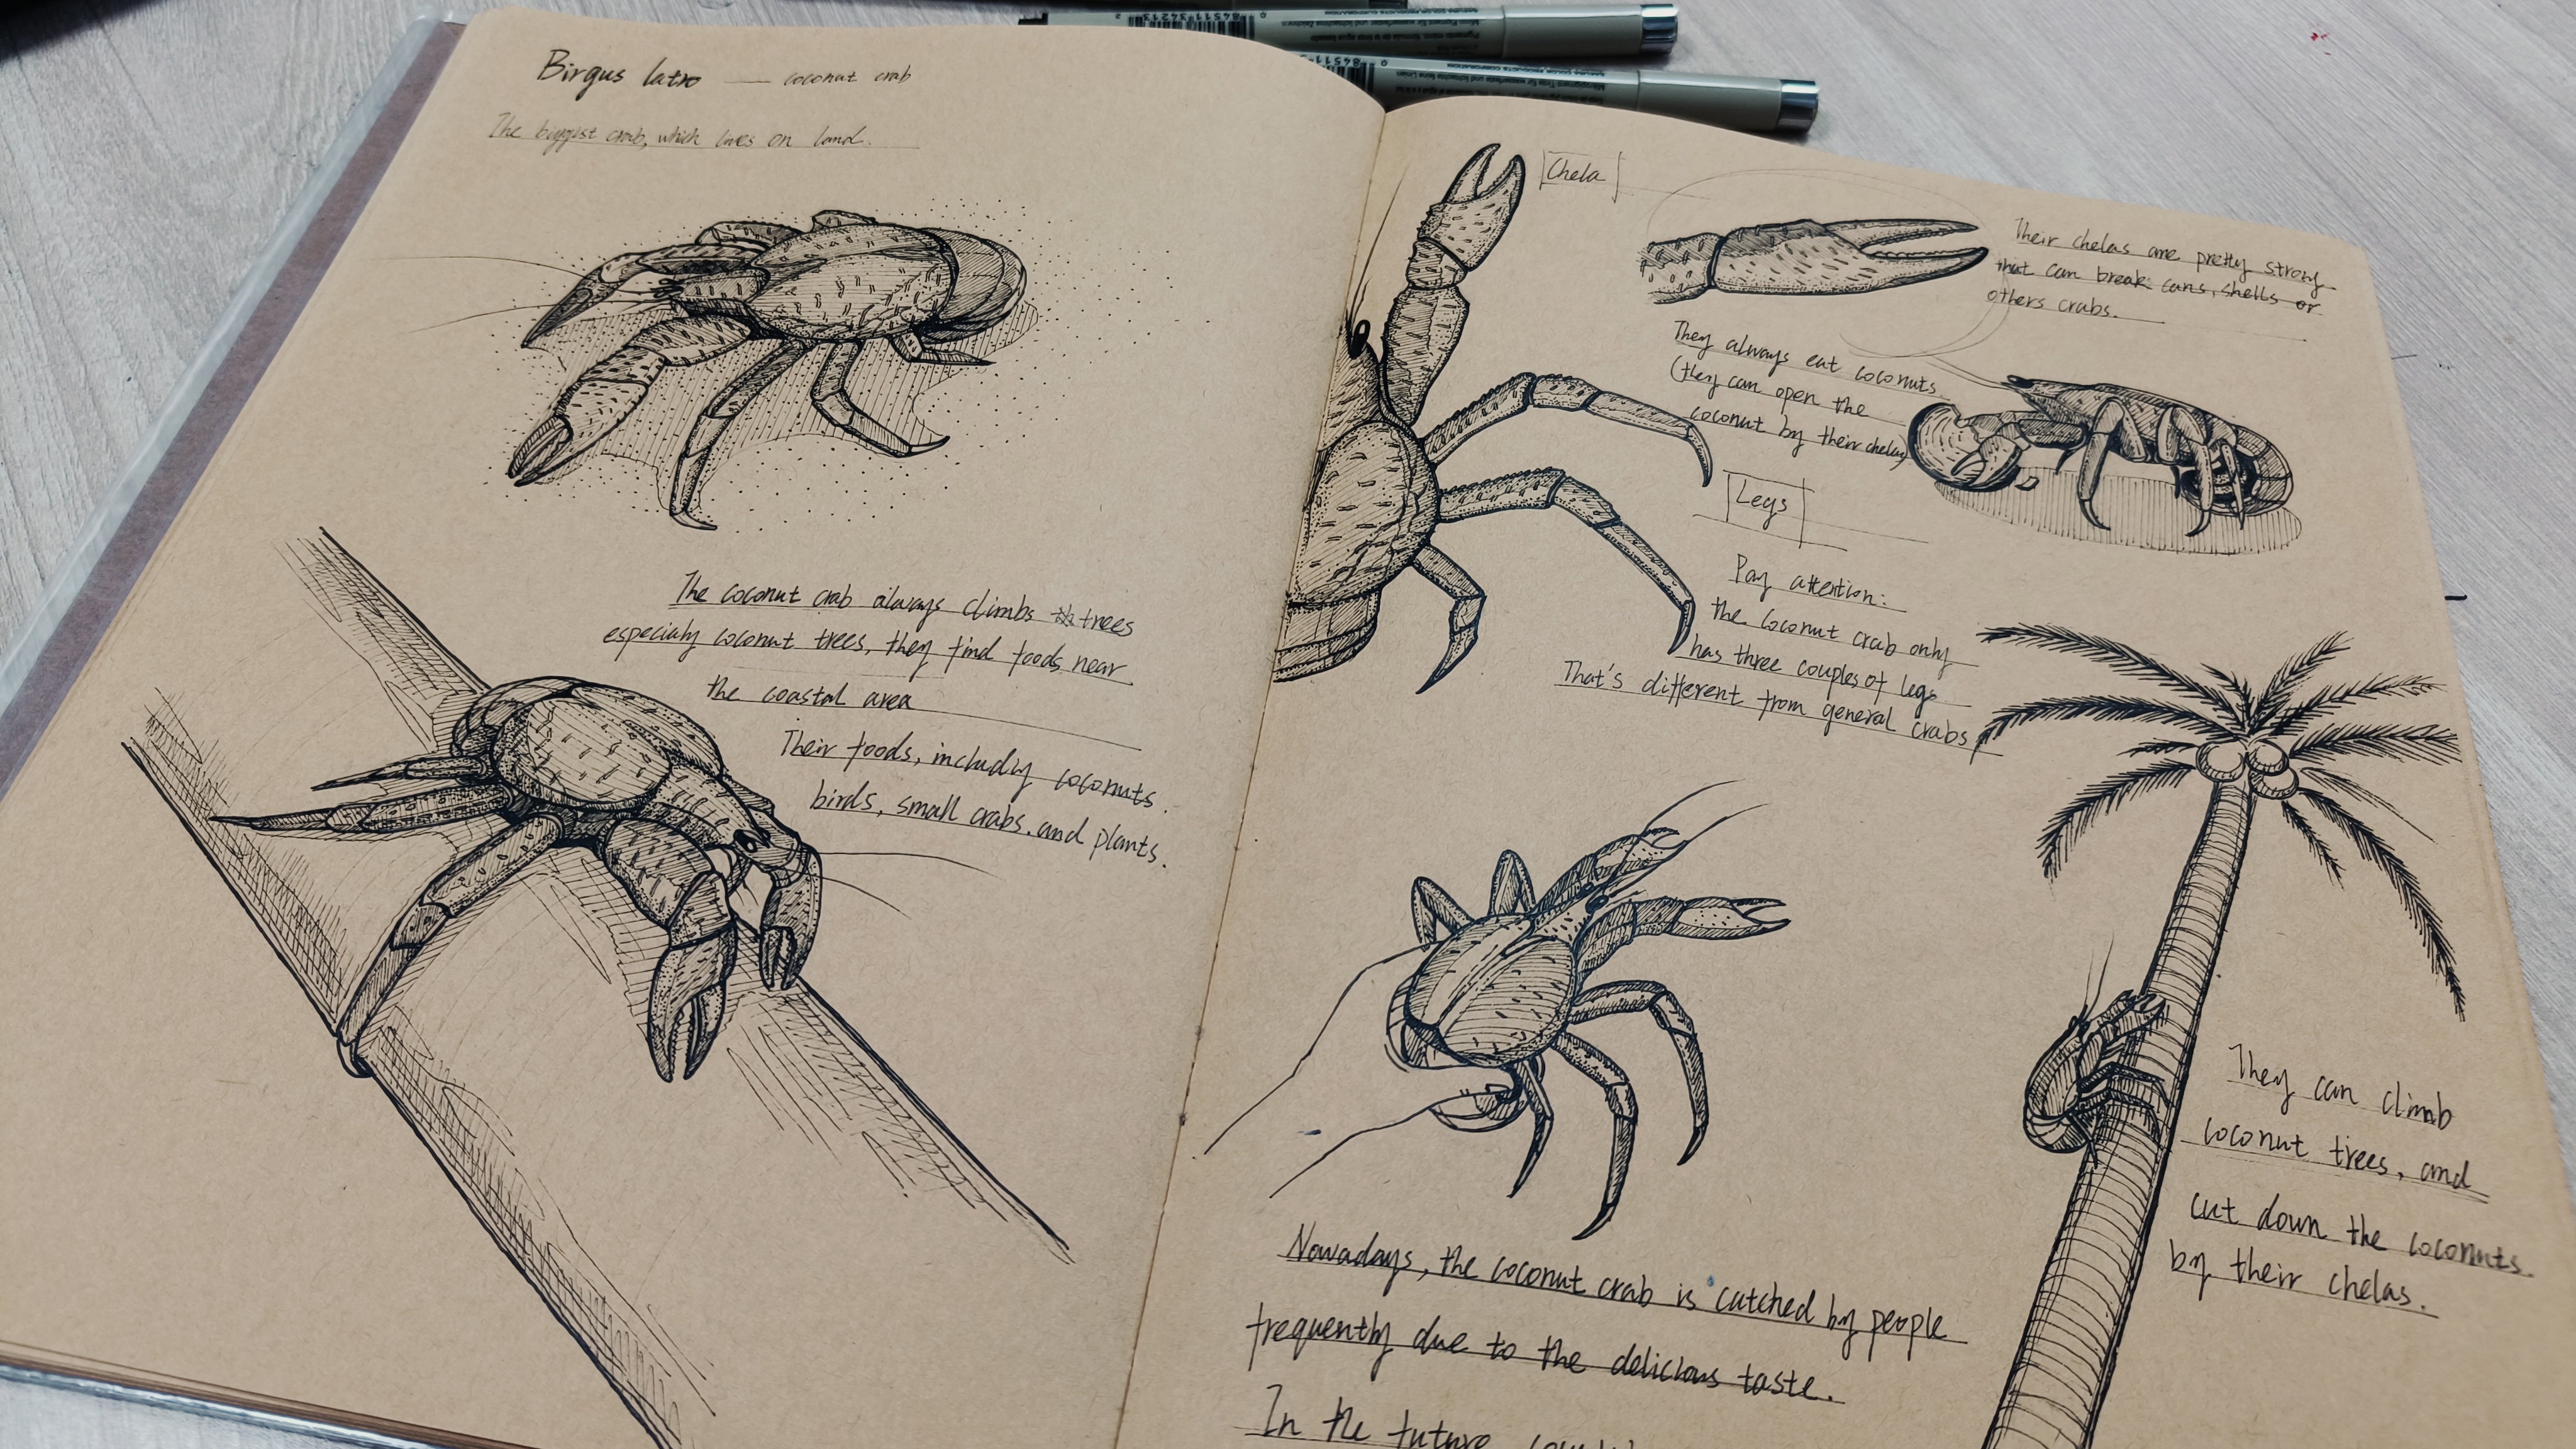 Birgus latro — coconut crab
The biggist crab, which lives on land.
The coconut crab always climbs trees
especialy coconut trees, they find foods near
the coastal area
Their foods, includiy coconuts.
birds, small crabs, and plants.
Chela
Their chelas are pretty strong
that can break cans, shells or
others crabs.
They always eat coconuts
(they can open the
coconut by their chelas)
Legs
Pay attention:
the coconut crab only
has three couples of legs
That's different from general crabs
They can climb
coconut trees, and
cut down the coconuts.
by their chelas.
Nowadays, the coconut crab is catched by people
frequently due to the delicious taste.
In the future